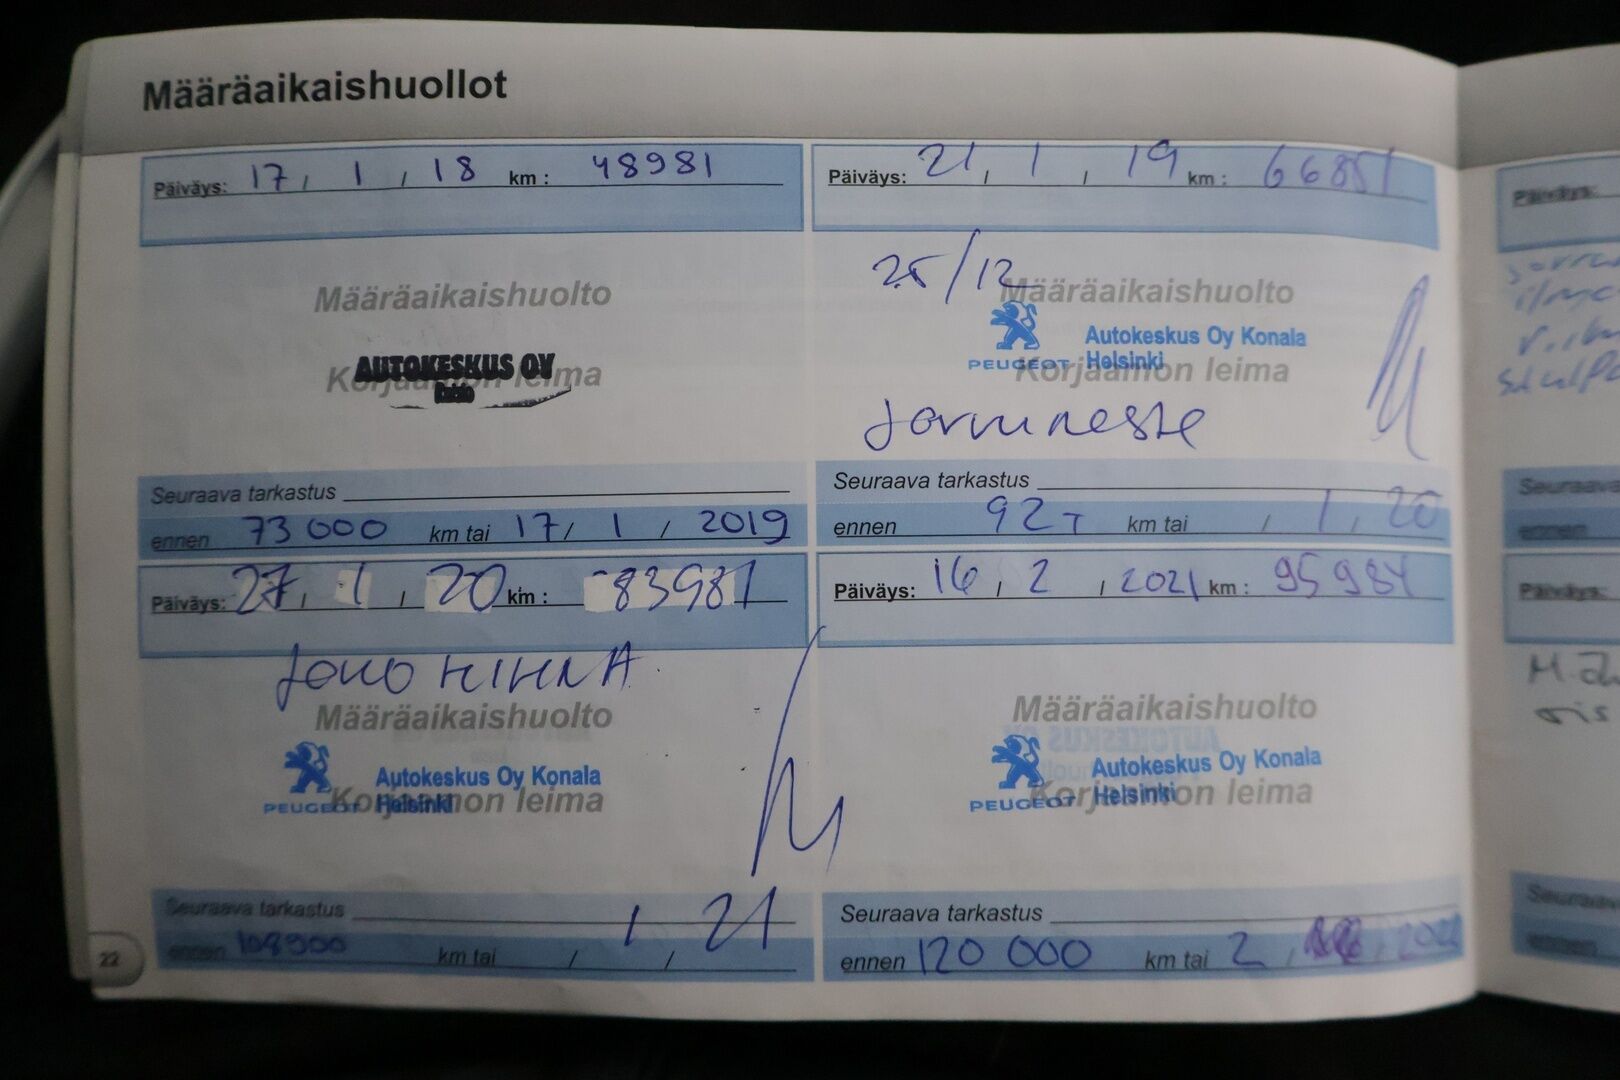 Määräaikaishuollot
Päiväys: 17 / 1 / 18 km : 48981
Määräaikaishuolto
Korjaamon leima
AUTOKESKUS OY
Seuraava tarkastus
ennen 73 000 km tai 17 / 1 / 2019
Päiväys: 21 / 1 / 19 km : 66851
25/12
Määräaikaishuolto
Autokeskus Oy Konala
PEUGEOT Helsinki
Korjaamon leima
Jarruneste
Seuraava tarkastus
ennen 92T km tai / 1 / 20
Päiväys: 27 / 1 / 20 km : 83981
JAKO HIHNA
Määräaikaishuolto
Autokeskus Oy Konala
PEUGEOT Helsinki
Korjaamon leima
Seuraava tarkastus
1 / 21
ennen 108900 km tai / /
Päiväys: 16 / 2 / 2021 km : 95984
Määräaikaishuolto
Autokeskus Oy Konala
PEUGEOT Helsinki
Korjaamon leima
Seuraava tarkastus
ennen 120 000 km tai 2 /
22
Päiväys:
Seuraava
ennen
Päiväys:
Seuraava
ennen